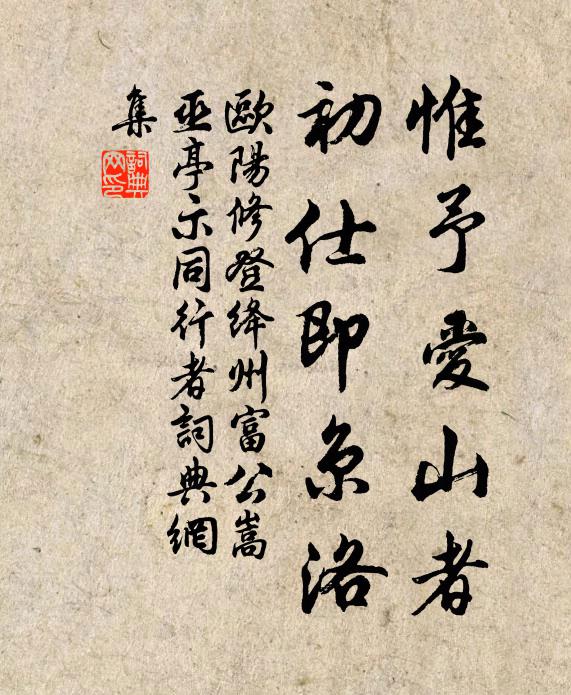 惟予愛山者
初仕即京洛
歐陽修登絳州富公嵩
巫亭示同行者詞典網
集
詞典
网印